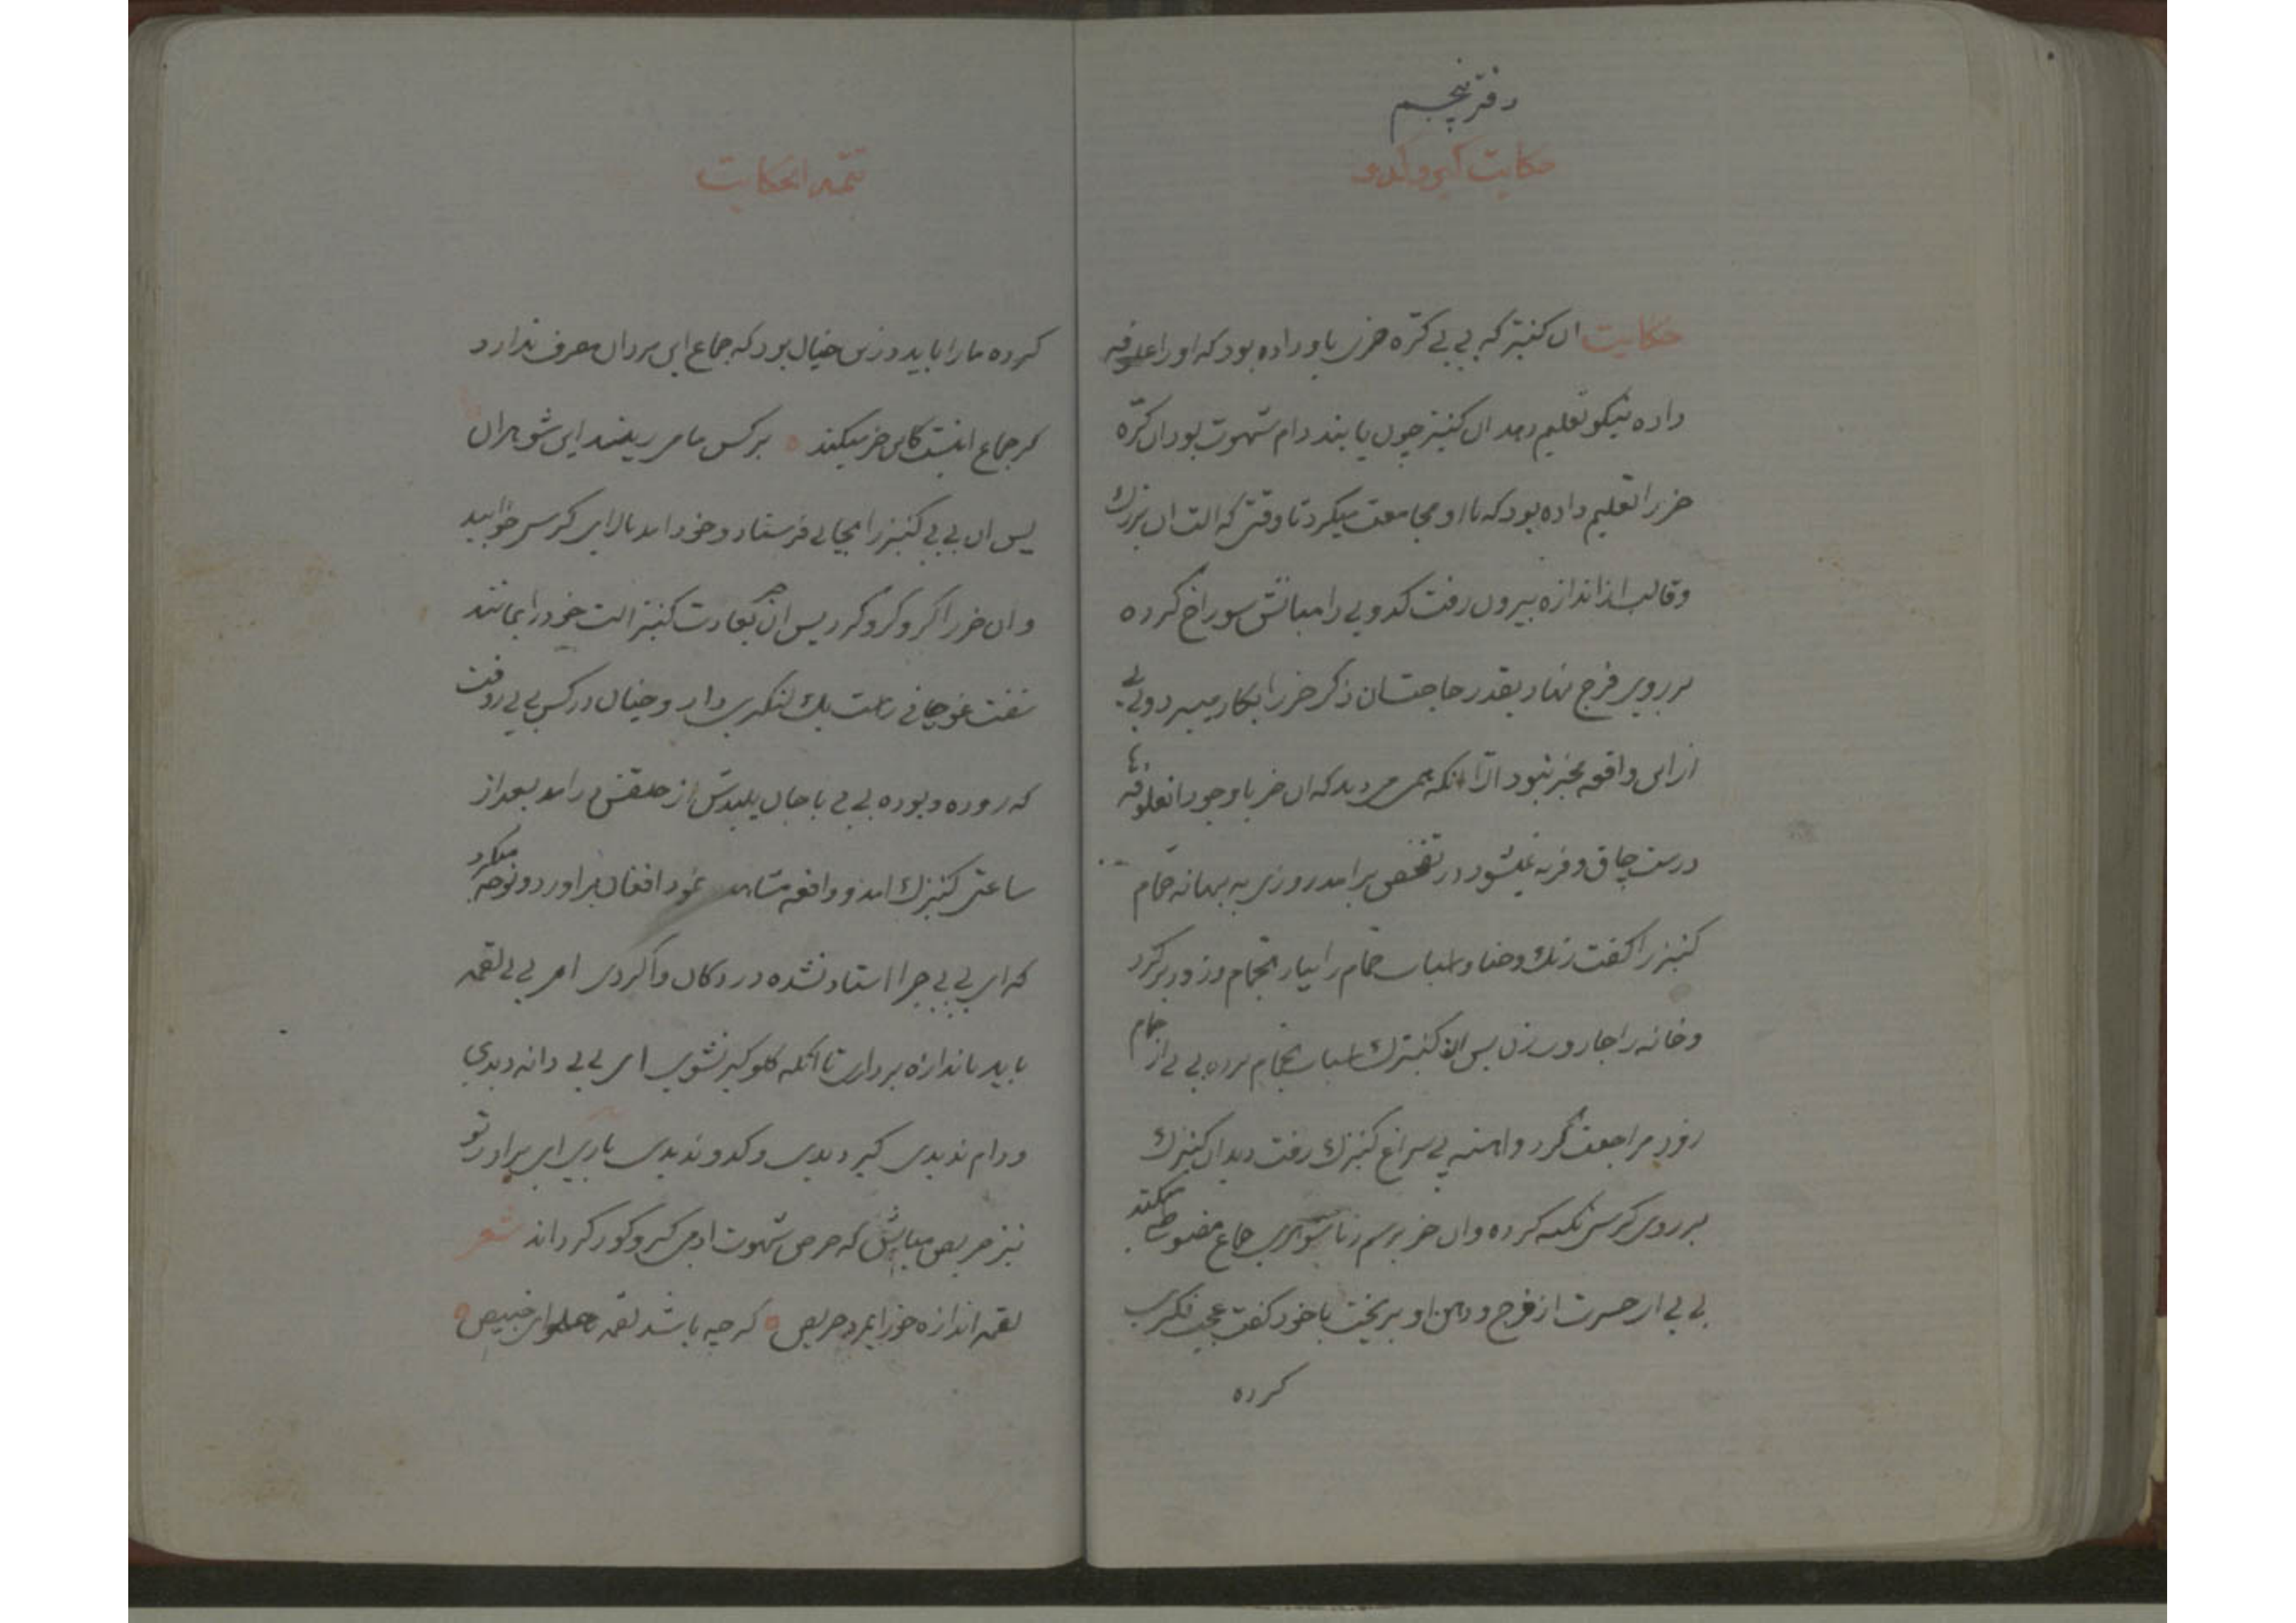 دفتر پنجم
حکایت کیر و کدو
حکایت ان کنیز که بی بی کره خری باو داده بود که او را علوفه
داده نیکو تعلیم دهد ان کنیز چون پابند دام شهوت بود ان کره
خر را تعلیم داده بود که با او مجامعت میکرد تا وقتی که الت ان بزرك
و قالب از اندازه بیرون رفت کدویی را میانش سوراخ کرده
بر روی فرج نهاد بقدر حاجتشان ذکر خر را بکار میبرد و بی بی
از این واقعه بخبر نبود می دید که ان خر با وجود انعلوفه ها
درست چاق و فربه نمیشود در تفحص برامد روزی به بهانه حمام
کنیز را گفت رنك و حنا و اسباب حمام را بیار بحمام و زود برکرد
و خانه را جاروب زن پس کنیزك اسباب بحمام برده بی بی از حمام
زود مراجعت کرد و اهسته پی سراغ کنیزك رفت دید ان کنیزك
بر روی کرسی تکیه کرده و ان خر برسم زناشوهری جماع مضبوطی میکند
بی بی از حسرت از فرج و دهن او بریخت با خود گفت عجب فکری
کرده
تتمه الحکایت
کرده ما را باید در این خیال بود که جماع این مردان مصرف ندارد
گر جماع اینست کاین خر میکند ه بر کس ما می ریند این شوهران
پس ان بی بی کنیز را بجائی فرستاد و خود امد بالای کرسی خوابید
و ان خر را کر و کر و کرد پس ان خر بعادت کنیز الت خود را بمانند
که روده و بوده بی بی با جان پلیدش از حلقش درامد بعد از
ساعتی کنیزك امد و واقعه مشاهده نمود افغان براورد و نوحه میکرد
که ای بی بی چرا استاد نشده در دکان وا کردی ای بی بی لقمه
باید باندازه برداری تا انکه کلوگیر نشوی ای بی بی دانه دیدی
و دام ندیدی کیر دیدی و کدو ندیدی باری ای برادر تو
نیز حریص مباش که حرص شهوت ادمی کر و کور گرداند شعر
لقمه اندازه خور ایمرد حریص ه گر چه باشد لقمه حلوای خبیص ه